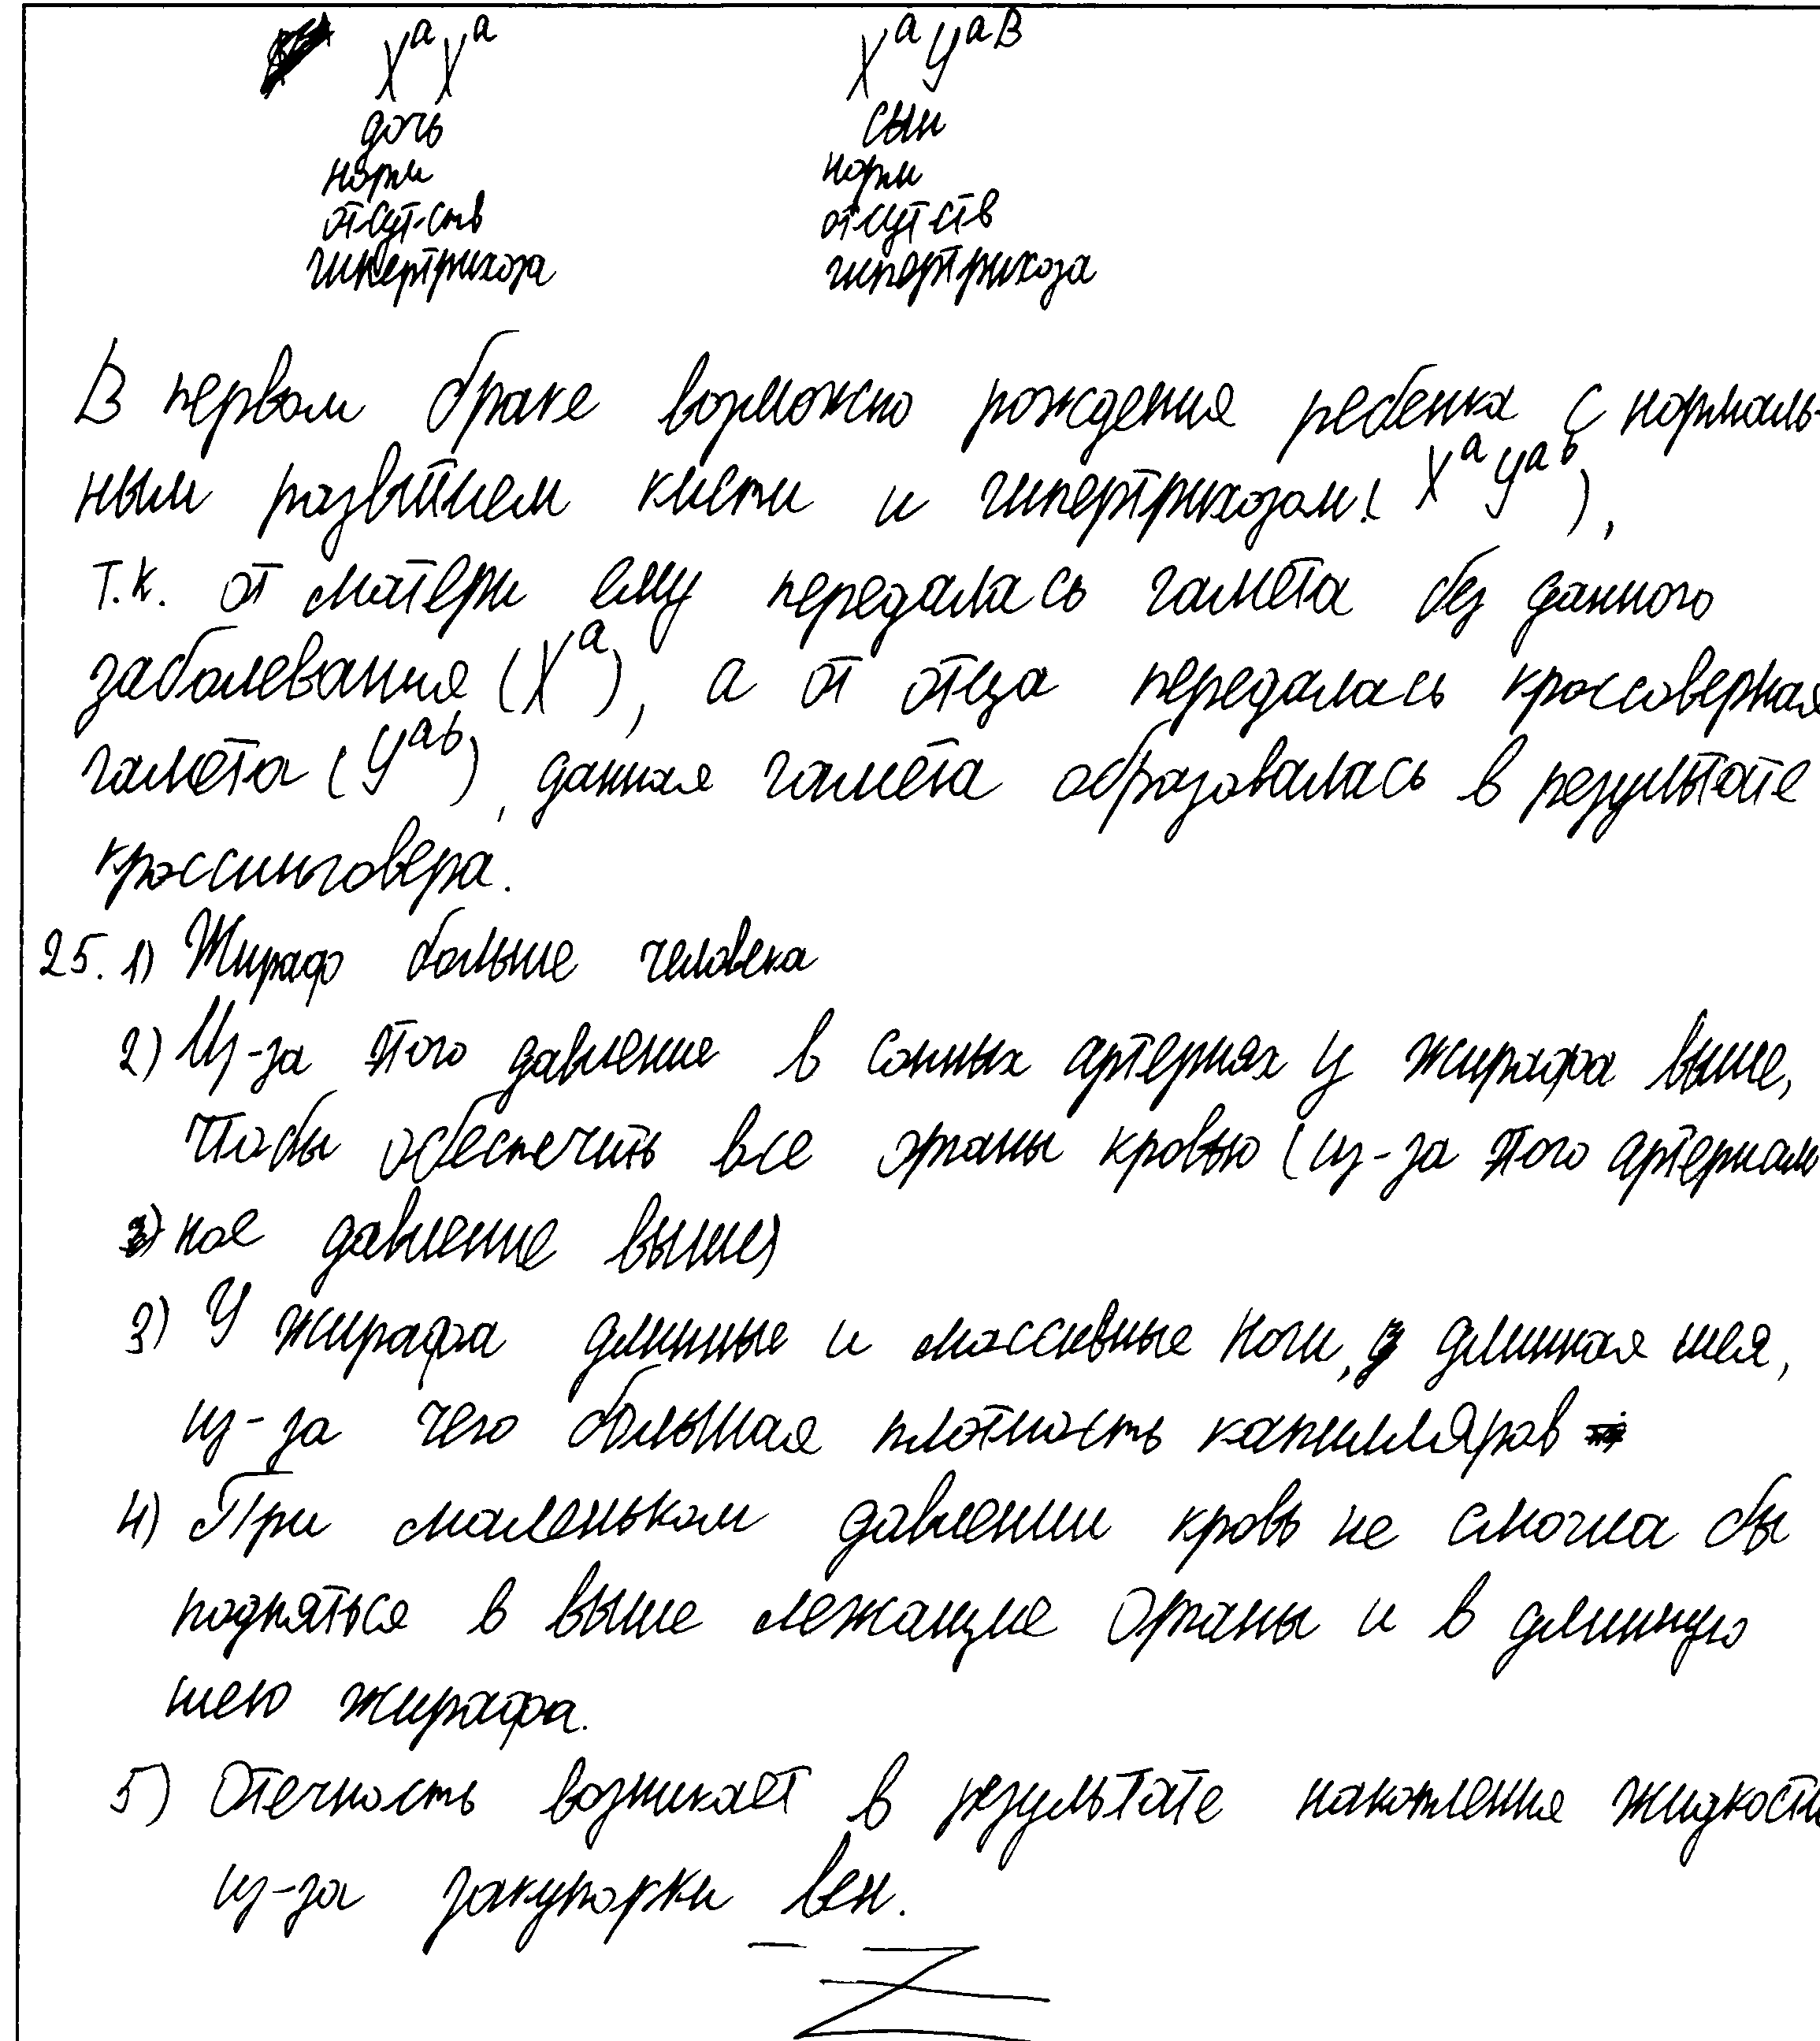 XᵃXᵃ XᵃYᵃᴮ
дочь сын
норм норм
отсутств отсутств
гипертрихоза гипертрихоза
В первом браке возможно рождения ребенка с нормаль-
ным развитием кисти и гипертрихозом (XᵃYᵃᵇ),
т.к. от матери ему передалась гамета без данного
заболевания (Xᵃ), а от отца передалась кроссоверная
гамета (Yᵃᵇ), данная гамета образовалась в результате
кроссинговера.
25. 1) Жираф больше человека
2) Из-за этого давление в сонных артериях у жирафа выше,
чтобы обеспечить все органы кровью (из-за этого артериаль
ное давление выше)
3) У жирафа длинные и массивные ноги, длинная шея,
из-за чего большая плотность капилляров
4) При маленьком давлении кровь не смогла бы
подняться в выше лежащие органы и в длинную
шею жирафа.
5) Отечность возникает в результате накопления жидкости
из-за закупорки вен.